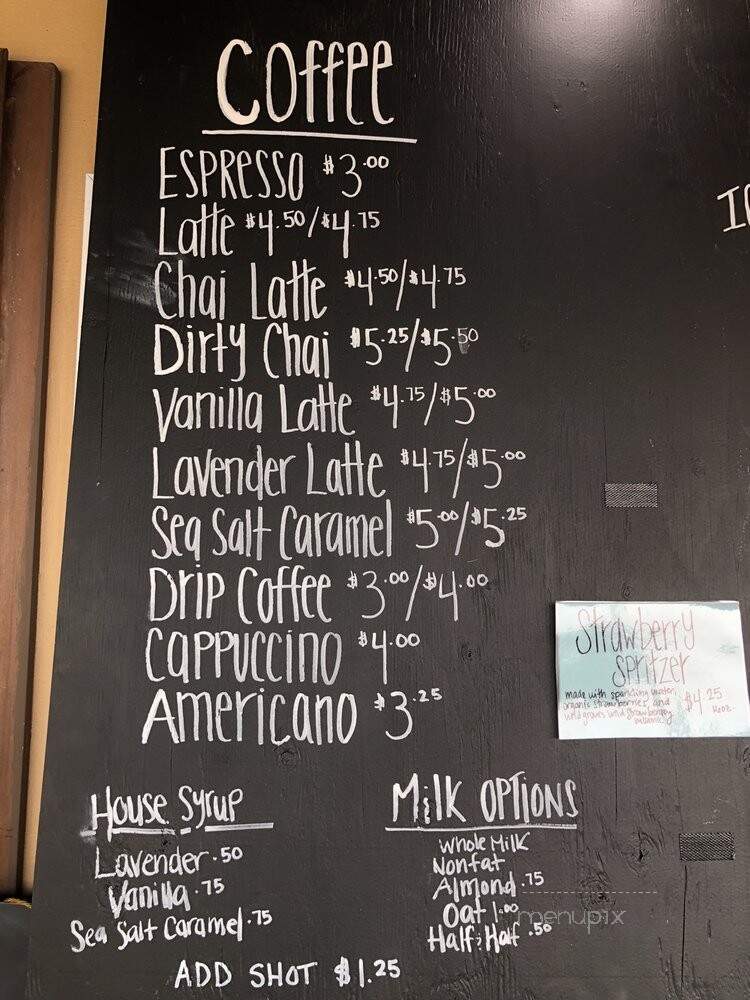 Coffee
ESPRESSO $3.00
Latte $4.50/$4.75
Chai Latte $4.50/$4.75
Dirty Chai $5.25/$5.50
Vanilla Latte $4.75/$5.00
Lavender Latte $4.75/$5.00
Sea Salt Caramel $5.00/$5.25
Drip Coffee $3.00/$4.00
CAPPUCCINO $4.00
Americano $3.25
Strawberry
Spritzer
made with sparkling water,
organic strawberries, and
wild groves wild strawberry
balsamic
$4.25
16oz.
House Syrup
Lavender .50
Vanilla .75
Sea Salt Caramel .75
Milk OPTIONS
Whole Milk
Nonfat
Almond .75
Oat 1.00
Half & Half .50
ADD SHOT $1.25
menupix